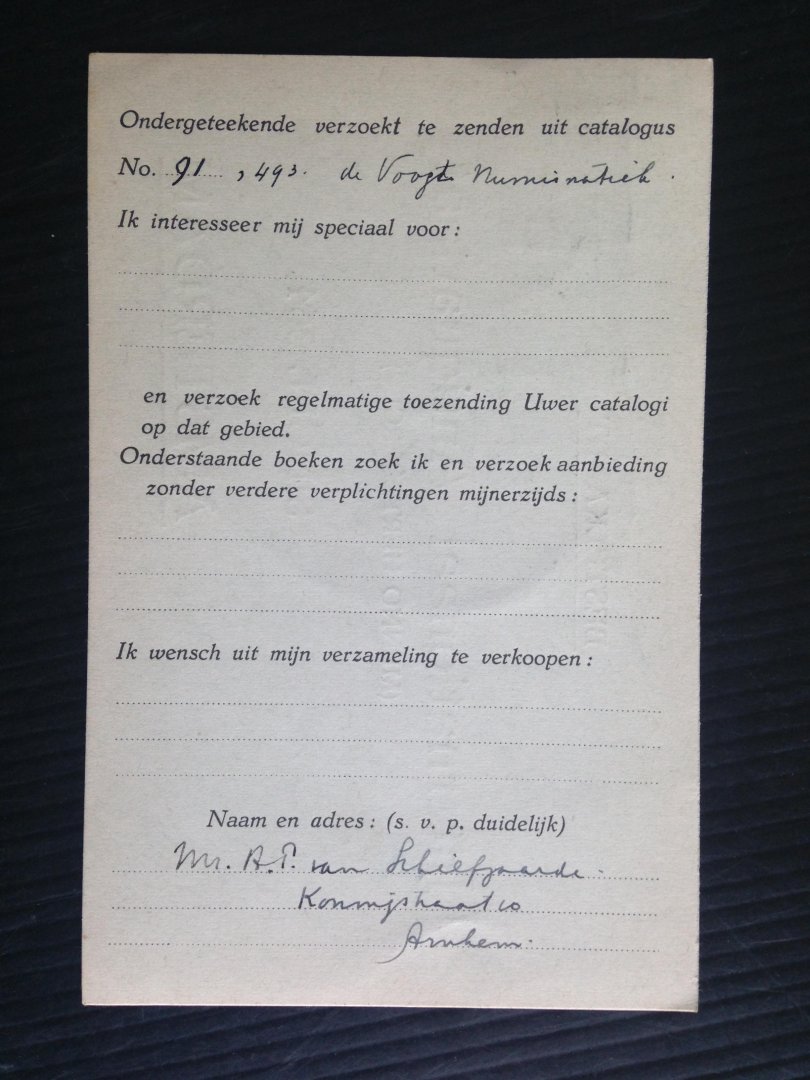 Ondergeteekende verzoekt te zenden uit catalogus
No. 91, 493. de Voogt Numismatiek.
Ik interesseer mij speciaal voor:
en verzoek regelmatige toezending Uwer catalogi
op dat gebied.
Onderstaande boeken zoek ik en verzoek aanbieding
zonder verdere verplichtingen mijnerzijds:
Ik wensch uit mijn verzameling te verkoopen:
Naam en adres: (s. v. p. duidelijk)
Mr. A.P. van Schilfgaarde.
Koningstraat 10
Arnhem.